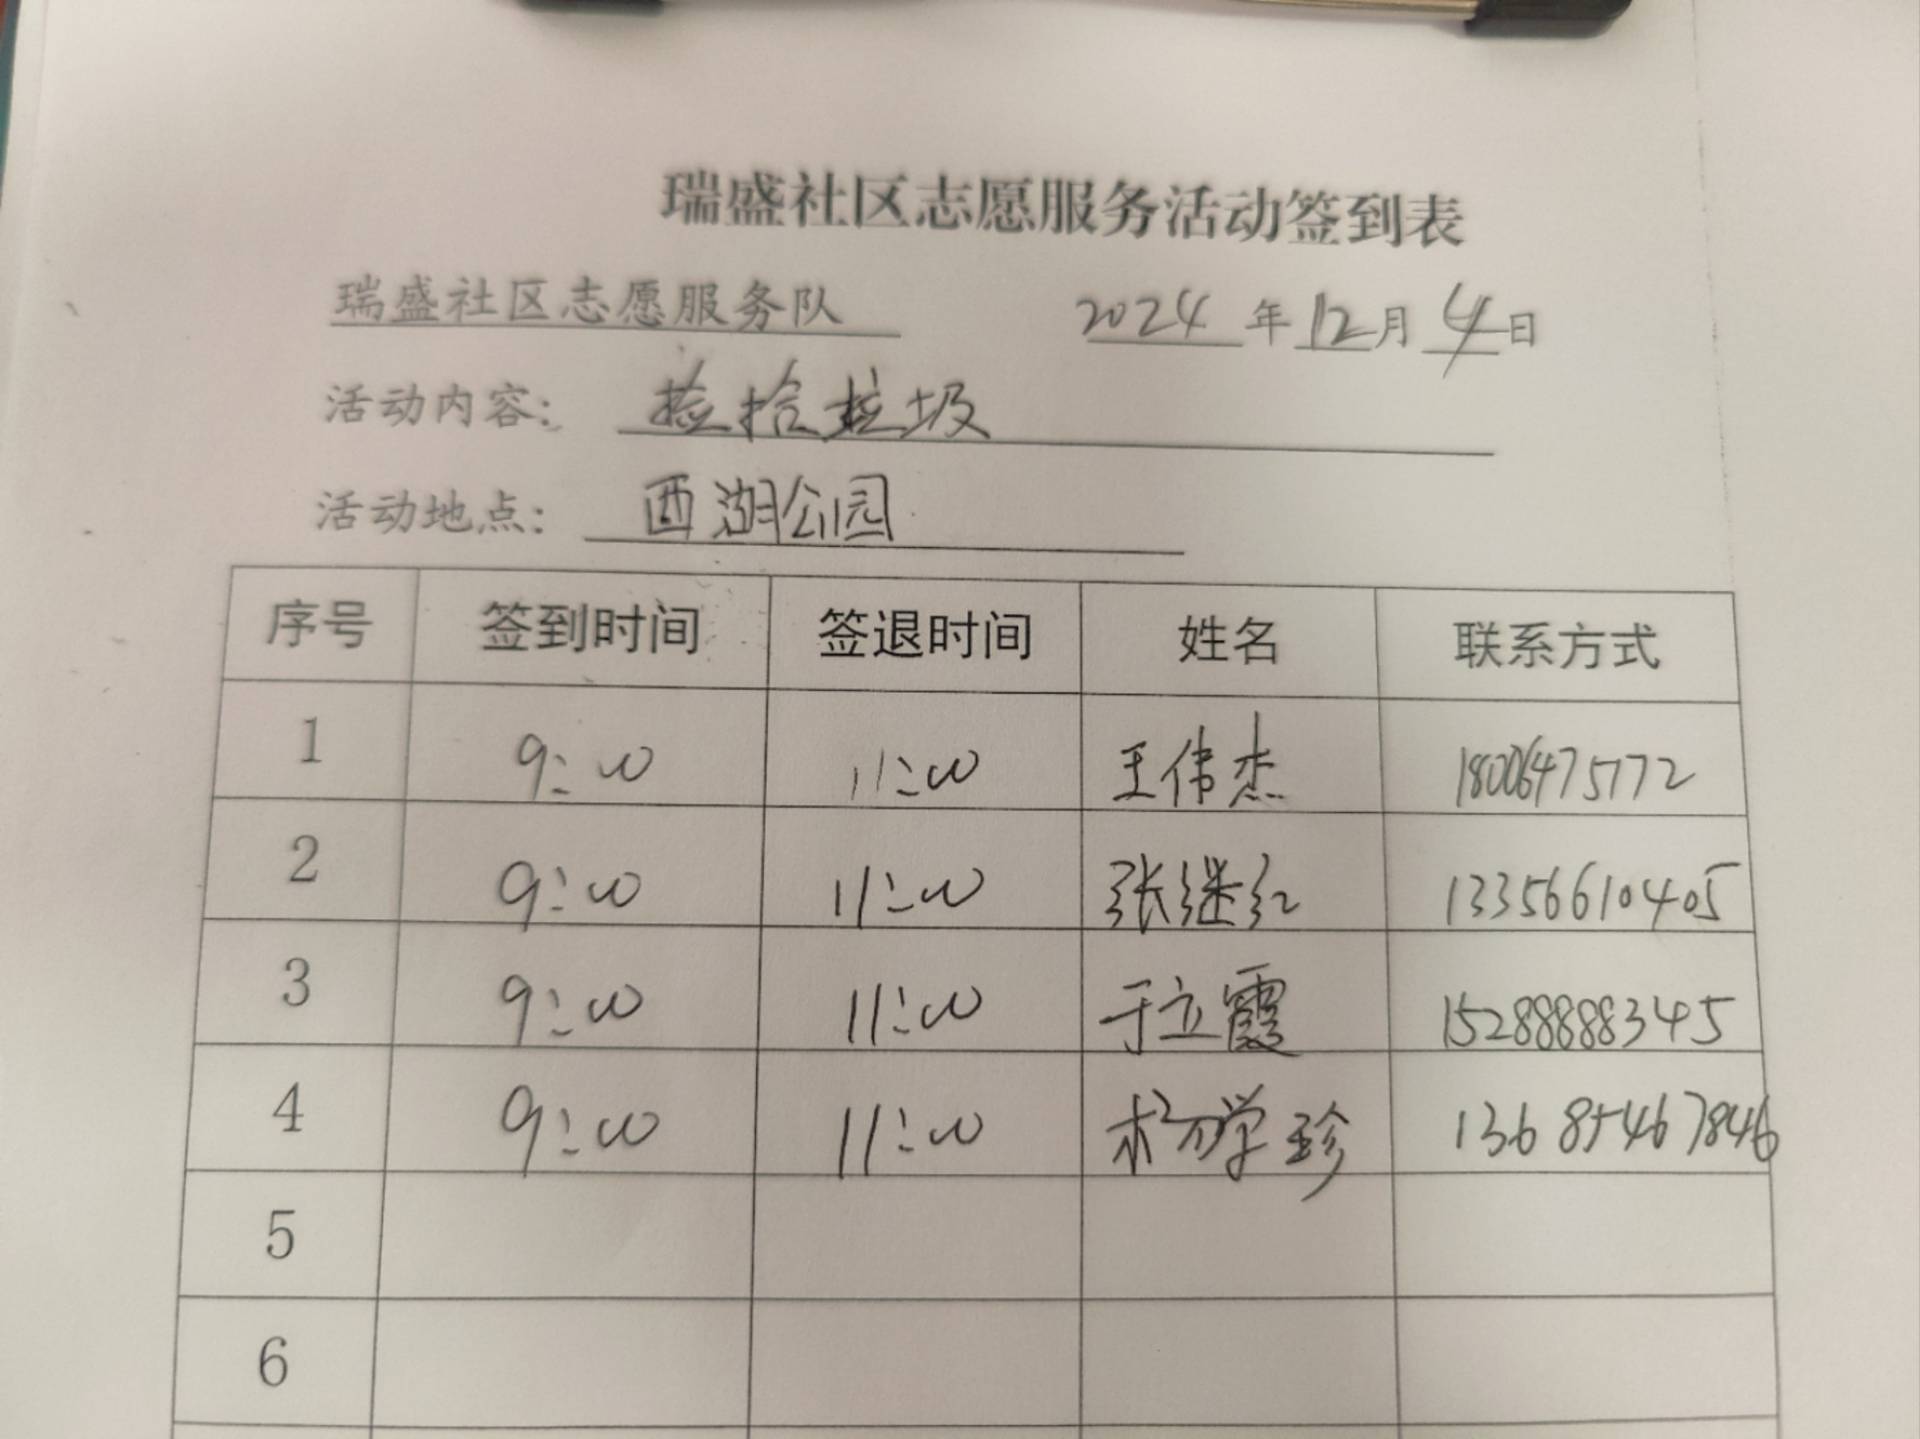 瑞盛社区志愿服务活动签到表
瑞盛社区志愿服务队 2024年12月4日
活动内容: 捡拾垃圾
活动地点: 西湖公园
序号 签到时间 签退时间 姓名 联系方式
1 9:00 11:00 王伟杰 18006475772
2 9:00 11:00 张继红 13356610405
3 9:00 11:00 于立霞 15288888345
4 9:00 11:00 杨学珍 13685467846
5
6